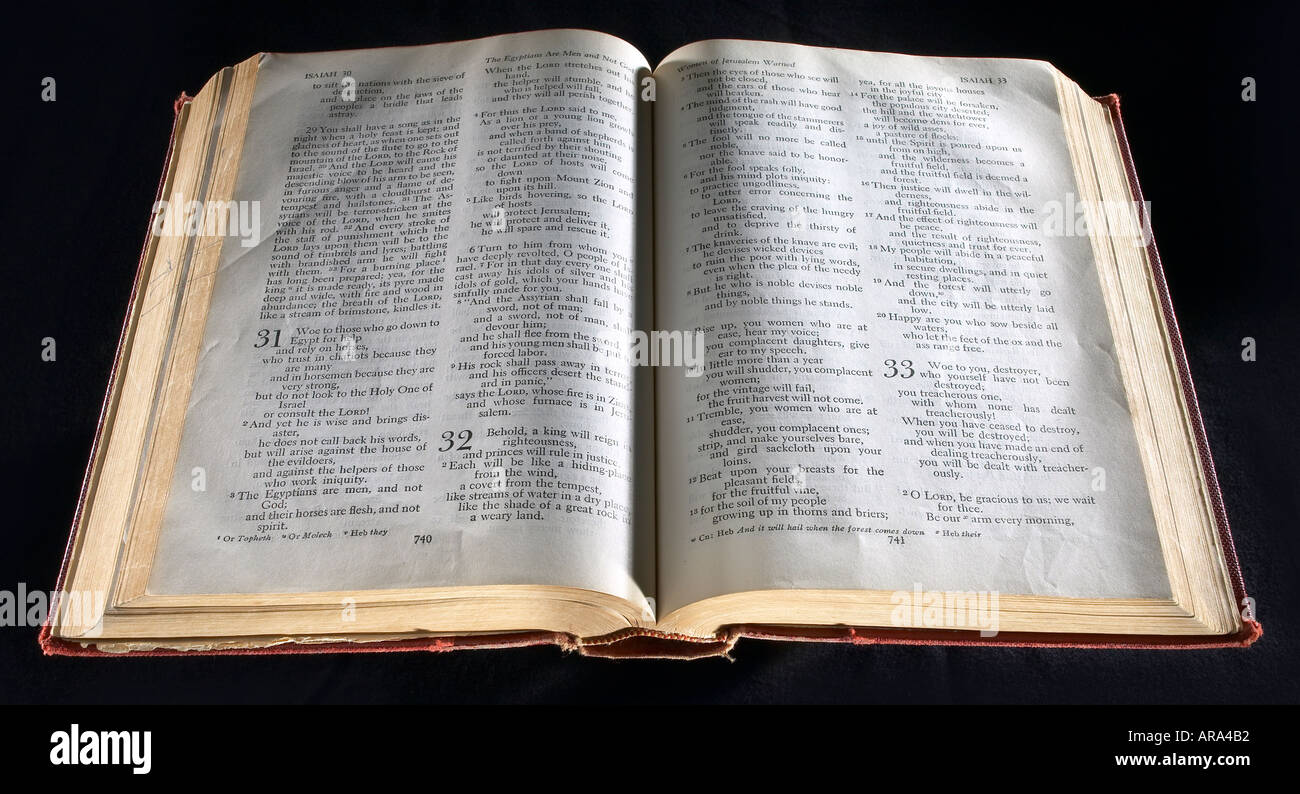 ISAIAH 30
The Egyptians Are Men and Not God
to sift the nations with the sieve of
destruction,
and to place on the jaws of the
peoples a bridle that leads
astray.
29 You shall have a song as in the
night when a holy feast is kept; and
gladness of heart, as when one sets out
to the sound of the flute to go to the
mountain of the LORD, to the Rock of
Israel. 30 And the LORD will cause his
majestic voice to be heard and the
descending blow of his arm to be seen,
in furious anger and a flame of de-
vouring fire, with a cloudburst and
tempest and hailstones. 31 The As-
syrians will be terror-stricken at the
voice of the LORD, when he smites
with his rod. 32 And every stroke of
the staff of punishment which the
LORD lays upon them will be to the
sound of timbrels and lyres; battling
with brandished arm he will fight
with them. 33 For a burning place
has long been prepared; yea, for the
king it is made ready, its pyre made
deep and wide, with fire and wood in
abundance; the breath of the LORD,
like a stream of brimstone, kindles it.
31 Woe to those who go down to
Egypt for help
and rely on horses,
who trust in chariots because they
are many
and in horsemen because they are
very strong,
but do not look to the Holy One of
Israel
or consult the LORD!
2 And yet he is wise and brings dis-
aster,
he does not call back his words,
but will arise against the house of
the evildoers,
and against the helpers of those
who work iniquity.
3 The Egyptians are men, and not
God;
and their horses are flesh, and not
spirit.
When the LORD stretches out his
hand,
the helper will stumble, and he
who is helped will fall,
and they will all perish together.
4 For thus the LORD said to me,
As a lion or a young lion growls
over his prey,
and when a band of shepherds is
called forth against him
is not terrified by their shouting
or daunted at their noise,
so the LORD of hosts will come
down
to fight upon Mount Zion and
upon its hill.
5 Like birds hovering, so the LORD
of hosts
will protect Jerusalem;
he will protect and deliver it,
he will spare and rescue it.
6 Turn to him from whom you
have deeply revolted, O people of Is-
rael. 7 For in that day every one shall
cast away his idols of silver and his
idols of gold, which your hands have
sinfully made for you.
8 "And the Assyrian shall fall by a
sword, not of man;
and a sword, not of man, shall
devour him;
and he shall flee from the sword,
and his young men shall be put to
forced labor.
9 His rock shall pass away in terror,
and his officers desert the standard
in panic,"
says the LORD, whose fire is in Zion,
and whose furnace is in Jeru-
salem.
32 Behold, a king will reign in
righteousness,
and princes will rule in justice.
2 Each will be like a hiding-place
from the wind,
a covert from the tempest,
like streams of water in a dry place,
like the shade of a great rock in
a weary land.
t Or Topheth u Or Molech v Heb they
740
Women of Jerusalem Warned
ISAIAH 33
3 Then the eyes of those who see will
not be closed,
and the ears of those who hear
will hearken.
4 The mind of the rash will have good
judgment,
and the tongue of the stammerers
will speak readily and dis-
tinctly.
5 The fool will no more be called
noble,
nor the knave said to be honor-
able.
6 For the fool speaks folly,
and his mind plots iniquity:
to practice ungodliness,
to utter error concerning the
LORD,
to leave the craving of the hungry
unsatisfied,
and to deprive the thirsty of
drink.
7 The knaveries of the knave are evil;
he devises wicked devices
to ruin the poor with lying words,
even when the plea of the needy
is right.
8 But he who is noble devises noble
things,
and by noble things he stands.
9 Rise up, you women who are at
ease, hear my voice;
you complacent daughters, give
ear to my speech.
10 In little more than a year
you will shudder, you complacent
women;
for the vintage will fail,
the fruit harvest will not come.
11 Tremble, you women who are at
ease,
shudder, you complacent ones;
strip, and make yourselves bare,
and gird sackcloth upon your
loins.
12 Beat upon your breasts for the
pleasant fields,
for the fruitful vine,
13 for the soil of my people
growing up in thorns and briers;
yea, for all the joyous houses
in the joyful city
14 For the palace will be forsaken,
the populous city deserted;
the hill and the watchtower
will become dens for ever,
a joy of wild asses,
a pasture of flocks;
15 until the Spirit is poured upon us
from on high,
and the wilderness becomes a
fruitful field,
and the fruitful field is deemed a
forest.
16 Then justice will dwell in the wil-
derness,
and righteousness abide in the
fruitful field.
17 And the effect of righteousness will
be peace,
and the result of righteousness,
quietness and trust for ever.
18 My people will abide in a peaceful
habitation,
in secure dwellings, and in quiet
resting places.
19 And the forest will utterly go
down,w
and the city will be utterly laid
low.
20 Happy are you who sow beside all
waters,
who let the feet of the ox and the
ass range free.
33 Woe to you, destroyer,
who yourself have not been
destroyed;
you treacherous one,
with whom none has dealt
treacherously!
When you have ceased to destroy,
you will be destroyed;
and when you have made an end of
dealing treacherously,
you will be dealt with treacher-
ously.
2 O LORD, be gracious to us; we wait
for thee.
Be our x arm every morning,
w Cn: Heb And it will hail when the forest comes down x Heb their
741
alamy
Image ID: ARA4B2
www.alamy.com